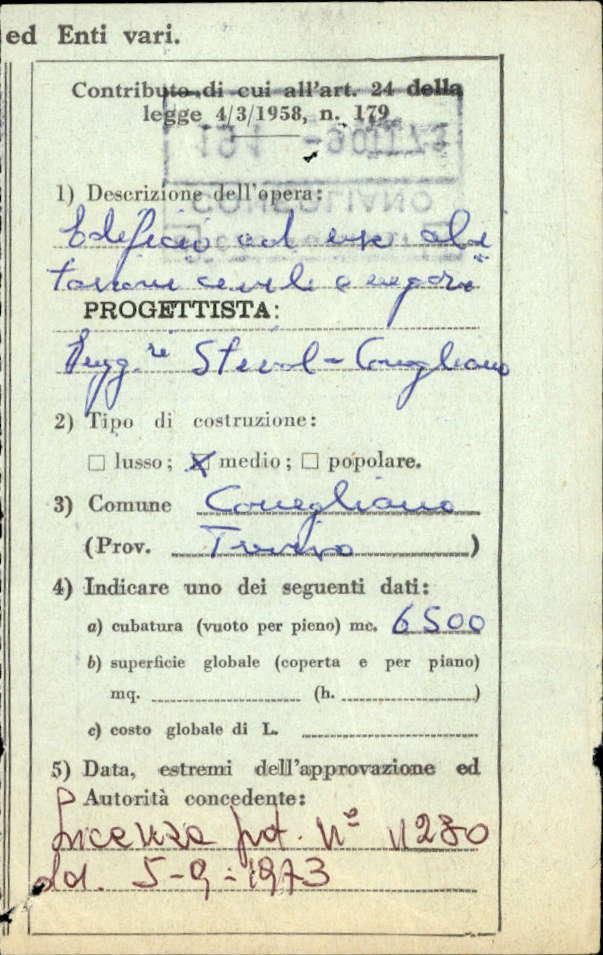 ed Enti vari.
Contributo di cui all'art. 24 della
legge 4/3/1958, n. 179
1) Descrizione dell'opera:
Edificio ad uso abi
tazione civile e negozi
PROGETTISTA:
Stival - Conegliano
2) Tipo di costruzione:
☐ lusso; ☒ medio; ☐ popolare.
3) Comune Conegliano
(Prov. Treviso)
4) Indicare uno dei seguenti dati:
a) cubatura (vuoto per pieno) mc. 6500
b) superficie globale (coperta e per piano)
mq. (h. )
c) costo globale di L.
5) Data, estremi dell'approvazione ed
Autorità concedente:
Licenza prot. N° 11280
dd. 5-9-1973